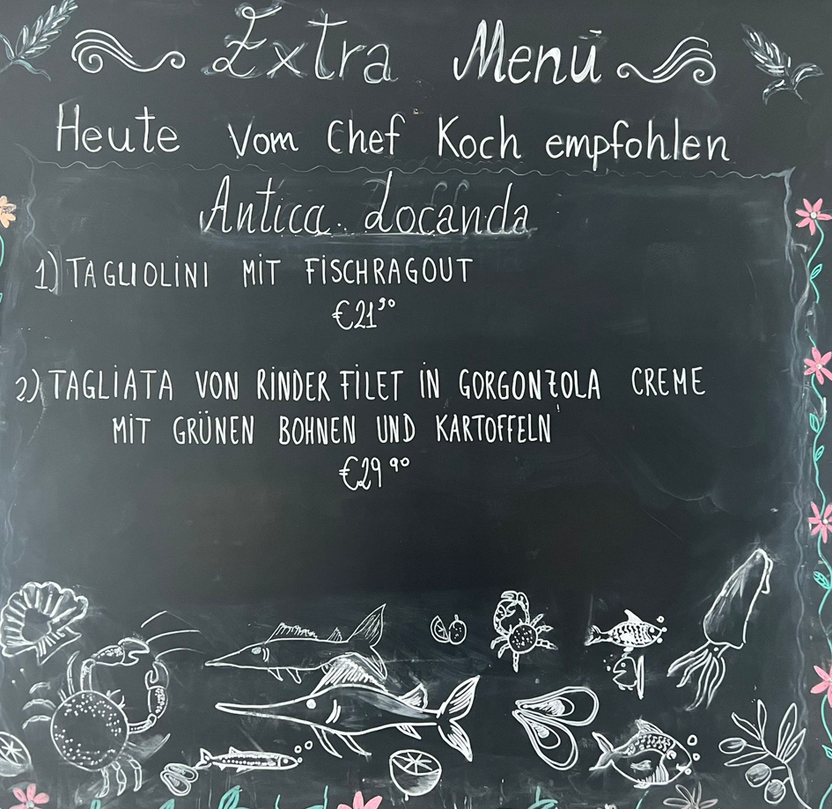 Extra Menü
Heute Vom Chef Koch empfohlen
Antica Locanda
1) TAGLIOLINI MIT FISCHRAGOUT
€21⁹⁰
2) TAGLIATA VON RINDER FILET IN GORGONZOLA CREME
MIT GRÜNEN BOHNEN UND KARTOFFELN
€29⁹⁰